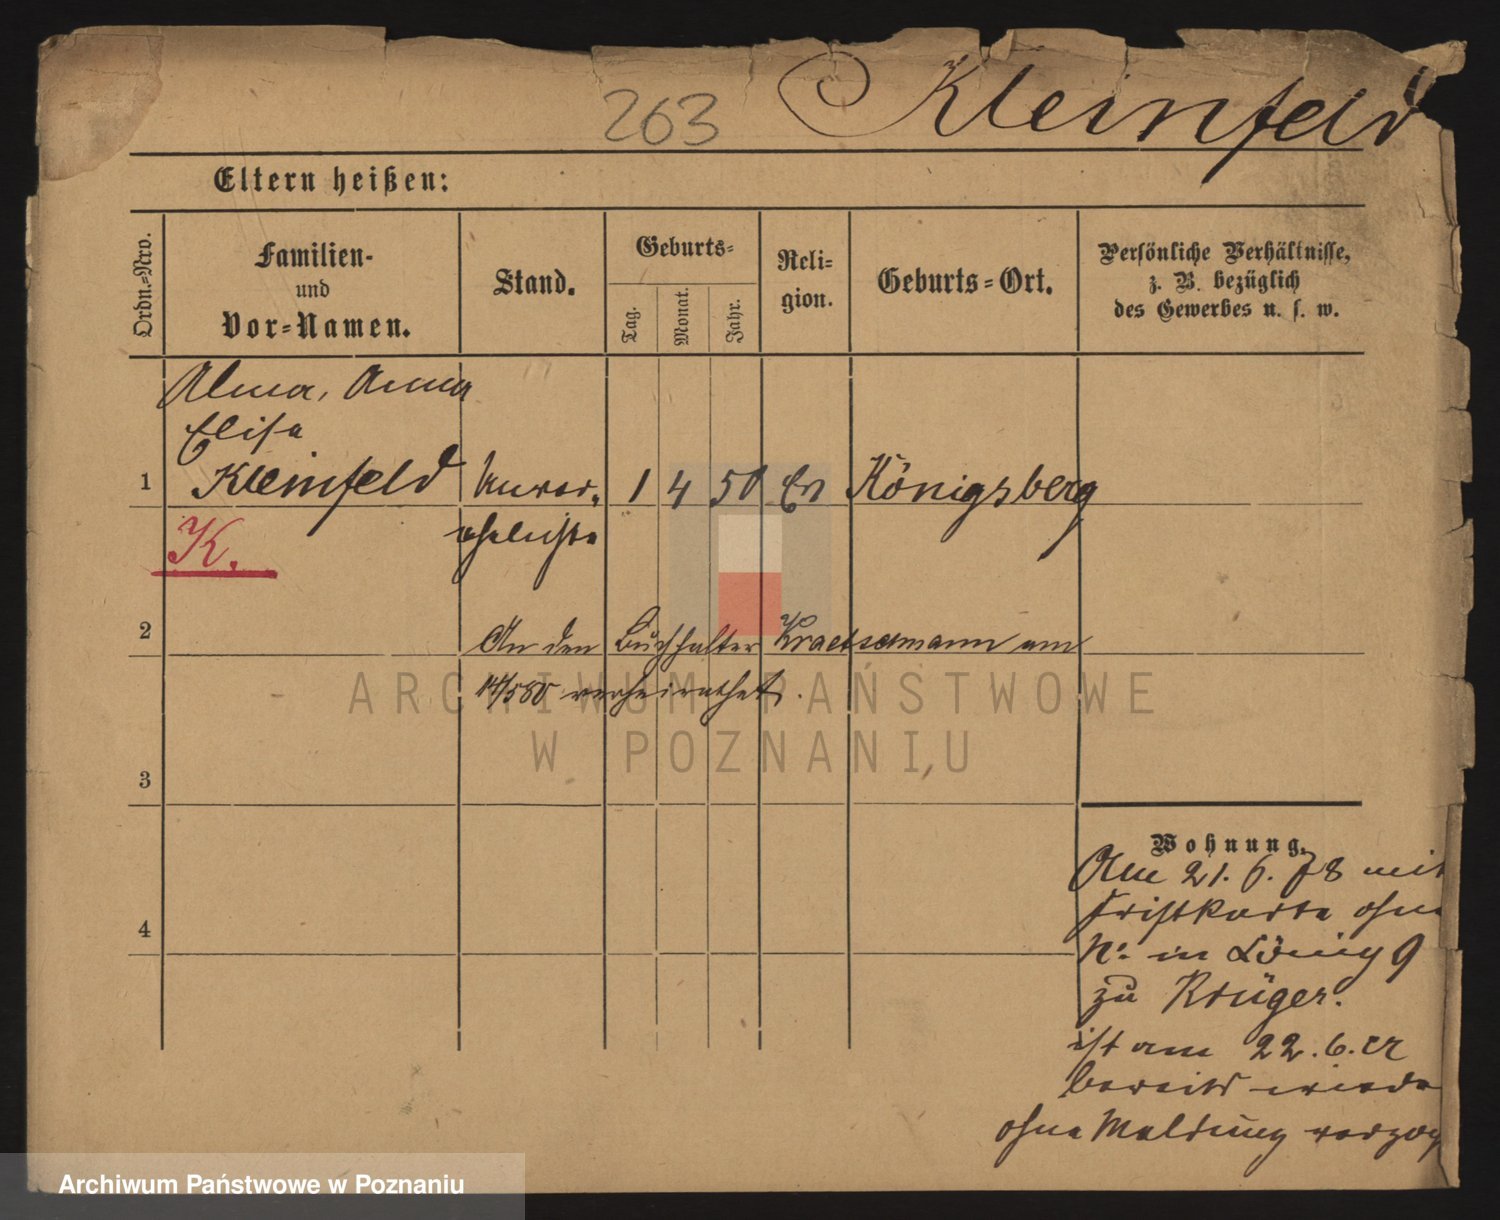 263 Kleinfeld
Eltern heißen:
Ordn.=Nro.
Familien-
und
Vor=Namen.
Stand.
Geburts=
Tag.
Monat.
Jahr.
Reli=
gion.
Geburts=Ort.
Persönliche Verhältnisse,
z. B. bezüglich
des Gewerbes u. s. w.
Alma, Anna
Elise
1 Kleinfeld Unver- 1 4 50 Ev Königsberg
K. ehelichte
2 An den Buchhalter Kraetschmann am
14/5 80 verheirathet.
ARCHIWUM PAŃSTWOWE
W POZNANIU
3
Wohnung.
Am 21. 6. 78 mit
Fristkarte ohne
4
No in König 9
zu Krüger.
ist am 22. 6. cr
bereits wieder
ohne Meldung verzog
Archiwum Państwowe w Poznaniu